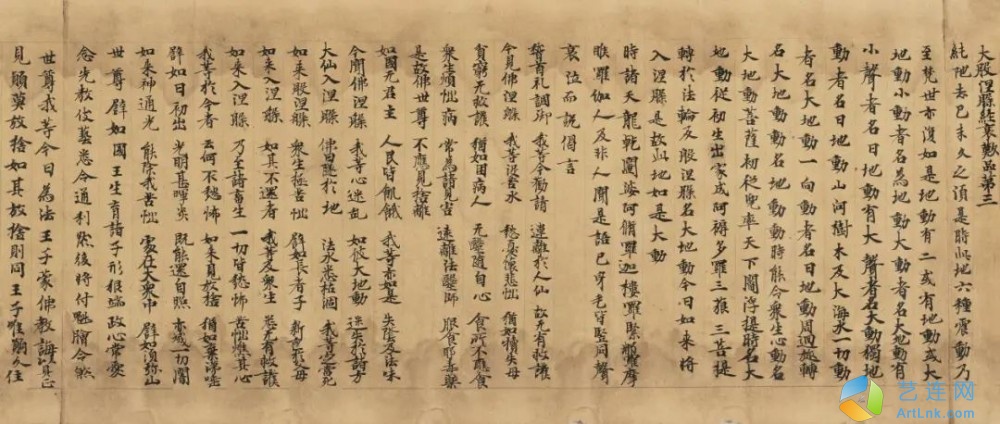 大般涅槃經哀歎品第三
純陁去已未久之頃是時此地六種震動乃
至梵世亦復如是地動有二或有地動或大
地動小動者名為地動大動者名大地動有
小聲者名曰地動有大聲者名大動獨地
動者名曰地動山河樹木及大海水一切動
者名大地動一向動者名曰地動周迴旋轉
名大地動動名地動動時能令衆生心動名
大地動菩薩初從兜率天下閻浮提時名大
地動從初生出家成阿耨多羅三藐三菩提
轉於法輪及般涅槃名大地動今日如來將
入涅槃是故此地如是大動
時諸天龍乾闥婆阿脩羅迦樓羅緊那羅摩
睺羅伽人及非人聞是語已身毛皆竪同聲
哀泣而說偈言
稽首礼調御 我等今勸請 違離於人仙 故无有救護
今見佛涅槃 我等没苦水 愁憂懷悲惱 猶如犢失母
貧窮无救護 猶如困病人 无醫隨自心 食所不應食
衆生煩惱病 常為諸見害 遠離法醫師 服食耶毒藥
是故佛世尊 不應見捨離
如國无君主 人民皆飢餓 我等亦如是 失蔭及法味
今聞佛涅槃 我等心迷乱 如彼大地動 迷失於諸方
大仙入涅槃 佛日墜於地 法水悉枯涸 我等定當死
如來般涅槃 衆生極苦惱 譬如長者子 新喪於父母
如來入涅槃 如其不還者 我等及衆生 悉无有救護
如來入涅槃 乃至諸畜生 一切皆愁怖 苦惱燋其心
我等於今者 云何不愁惱 如來見放捨 猶如棄涕唾
譬如日初出 光明甚暉炎 既能還自照 亦滅一切闇
如來神通光 能除我苦惱 處在大衆中 譬如須弥山
世尊譬如國王生育諸子形貌端政心常愛
念先教伎藝悉令通利然後將付魁膾令煞
世尊我等今日為法王子蒙佛教誨以具正
見願莫放捨如其放捨則同王子唯願久住
艺连网
ArtLnk.com